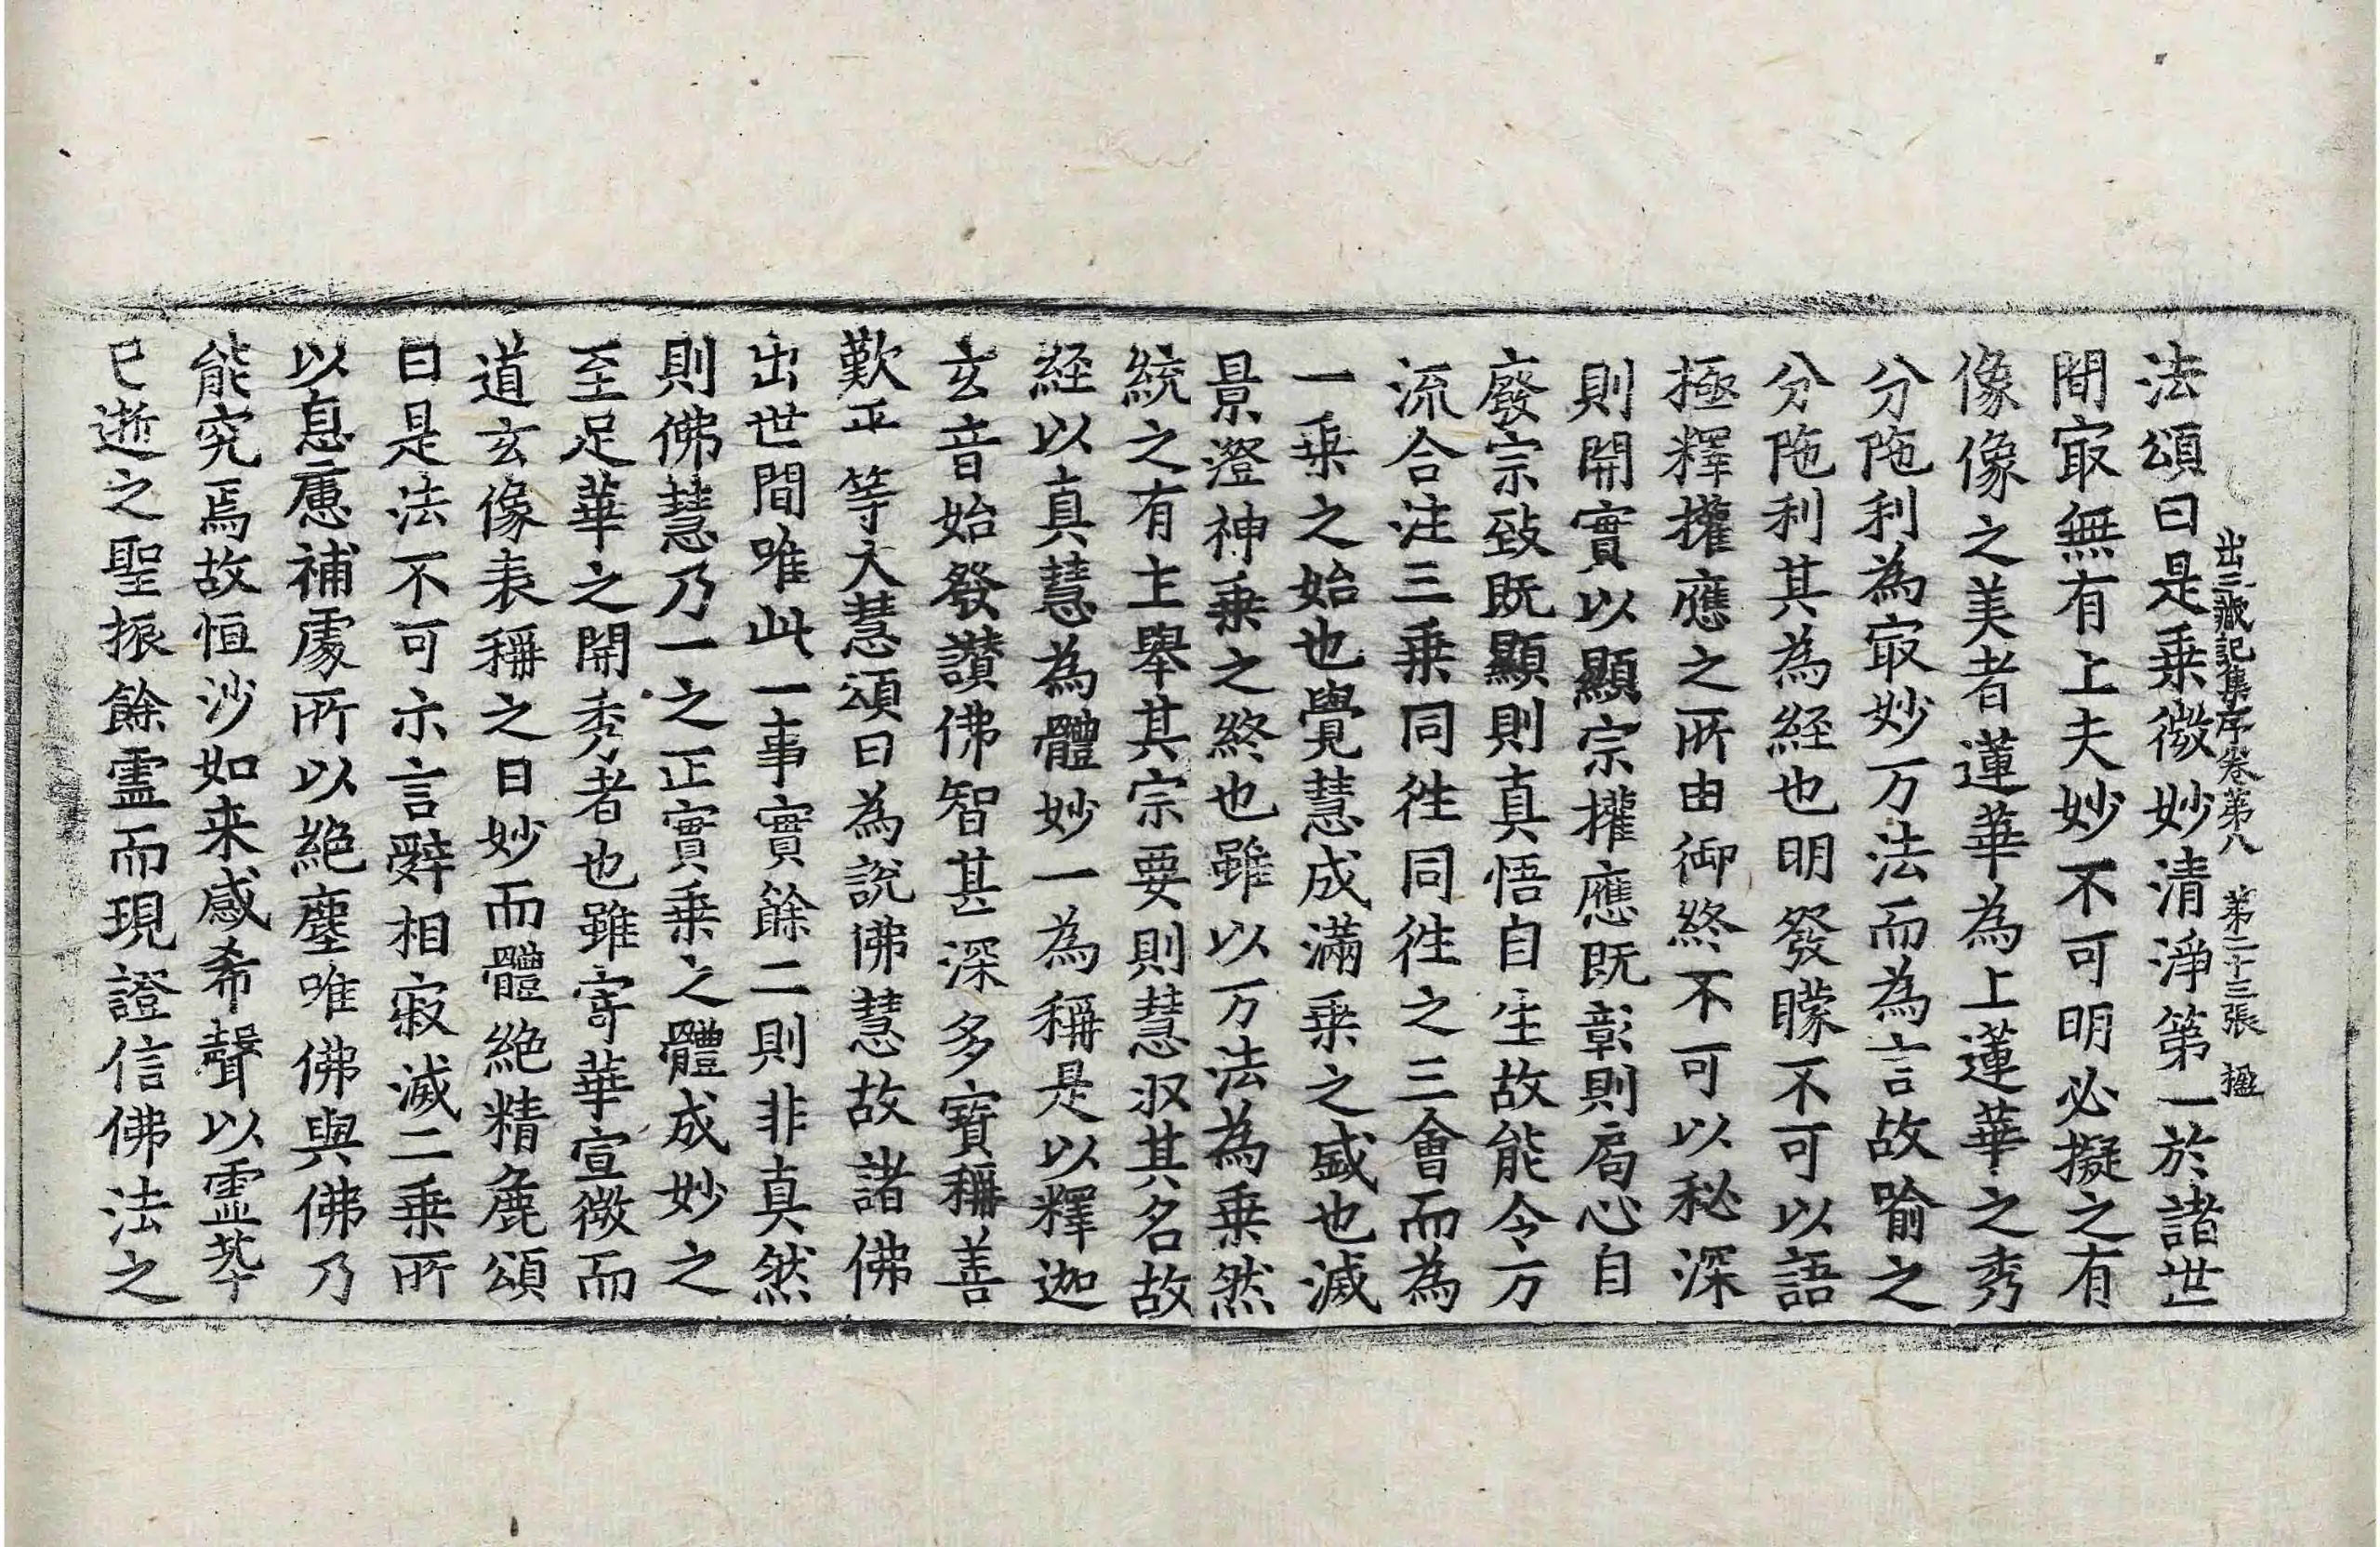 出三藏記集序卷第八 第二十三張 楹
法頌曰是乗微妙清淨第一於諸世
間㝡無有上夫妙不可明必擬之有
像像之美者蓮華為上蓮華之秀
分陁利為㝡妙万法而為言故喻之
分陁利其為経也明發矇不可以語
極釋權應之所由御終不可以秘深
則開實以顯宗權應既彰則局心自
廢宗致既顯則真悟自生故能令万
流合注三乗同徃同徃之三會而為
一乗之始也覺慧成滿乗之盛也滅
景澄神乗之終也雖以万法為乗然
統之有主舉其宗要則慧収其名故
経以真慧為體妙一為稱是以釋迦
玄音始發讃佛智甚深多寳稱善
歎平等大慧頌曰為說佛慧故諸佛
出世間唯此一事實餘二則非真然
則佛慧乃一之正實乗之體成妙之
至足華之開秀者也雖寄華宣微而
道玄像表稱之曰妙而體絶精麁頌
曰是法不可示言辤相寂滅二乗所
以息慮補處所以絶塵唯佛與佛乃
能究焉故恒沙如来感希聲以霊𦭘
已逝之聖振餘霊而現證信佛法之